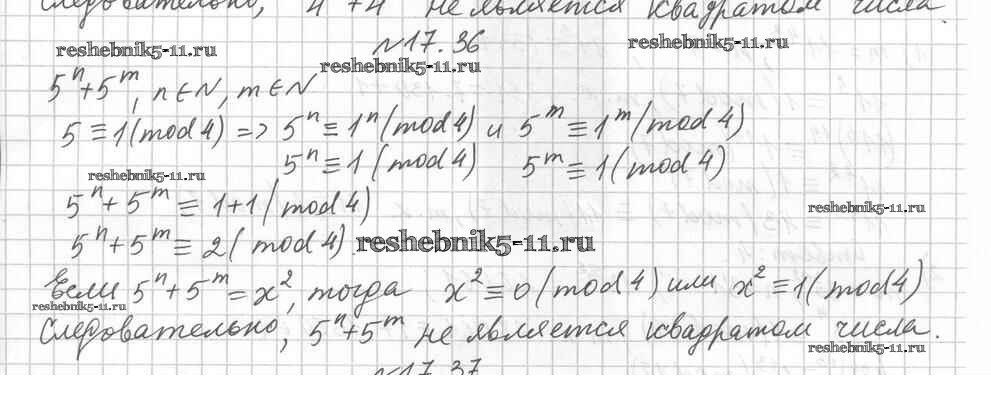 Следовательно, 4 + 4 не является квадратом числа.
№17.36
reshebnik5-11.ru
reshebnik5-11.ru
reshebnik5-11.ru
5^n+5^m, n∈N, m∈N
5≡1(mod 4) => 5^n≡1^n(mod 4) и 5^m≡1^m(mod 4)
5^n≡1(mod 4) 5^m≡1(mod 4)
reshebnik5-11.ru
5^n+5^m≡1+1(mod 4)
reshebnik5-11.ru
5^n+5^m≡2(mod 4).
reshebnik5-11.ru
Если 5^n+5^m=x^2, тогда x^2≡0(mod 4) или x^2≡1(mod 4)
reshebnik5-11.ru
Следовательно, 5^n+5^m не является квадратом числа.
reshebnik5-11.ru
№17.37